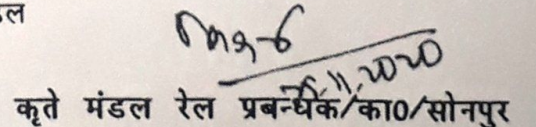 ल
11.2020
कृते मंडल रेल प्रबन्धक/का0/सोनपुर